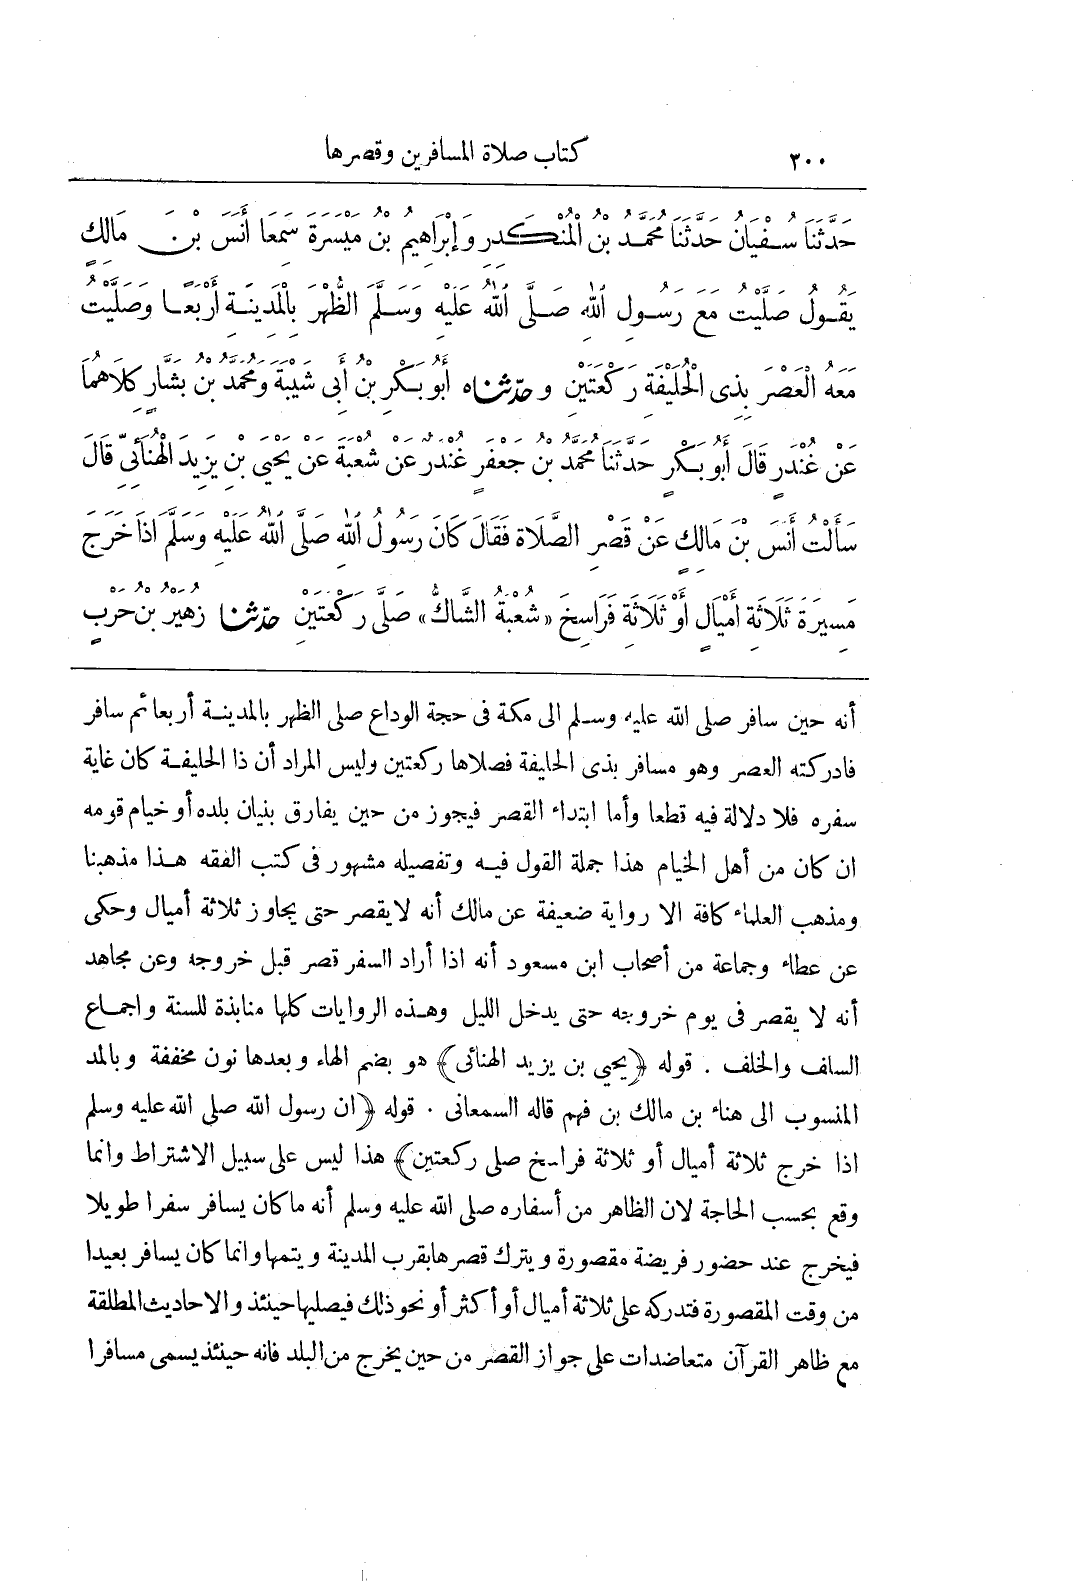 ٢٠٠ كتاب صلاة المسافرين وقصرها
حَدَّثَنَا سُفْيَانُ حَدَّثَنَا مُحَمَّدُ بْنُ الْمُنْكَدِرِ وَإِبْرَاهِيمُ بْنُ مَيْسَرَةَ سَمِعَا أَنَسَ بْنَ مَالِكٍ
يَقُولُ صَلَّيْتُ مَعَ رَسُولِ اللهِ صَلَّى اللهُ عَلَيْهِ وَسَلَّمَ الظُّهْرَ بِالْمَدِينَةِ أَرْبَعًا وَصَلَّيْتُ
مَعَهُ الْعَصْرَ بِذِى الْحُلَيْفَةِ رَكْعَتَيْنِ و حدّثناه أَبُو بَكْرِ بْنُ أَبِى شَيْبَةَ وَمُحَمَّدُ بْنُ بَشَّارٍ كِلَاهُمَا
عَنْ غُنْدَرٍ قَالَ أَبُو بَكْرٍ حَدَّثَنَا مُحَمَّدُ بْنُ جَعْفَرٍ غُنْدَرٌ عَنْ شُعْبَةَ عَنْ يَحْيَى بْنِ يَزِيدَ الْهُنَائِىِّ قَالَ
سَأَلْتُ أَنَسَ بْنَ مَالِكٍ عَنْ قَصْرِ الصَّلَاةِ فَقَالَ كَانَ رَسُولُ اللهِ صَلَّى اللهُ عَلَيْهِ وَسَلَّمَ اذَا خَرَجَ
مَسِيرَةَ ثَلَاثَةِ أَمْيَالٍ أَوْ ثَلَاثَةِ فَرَاسِخَ «شُعْبَةُ الشَّاكُّ» صَلَّى رَكْعَتَيْنِ حدّثنا زُهَيْرُ بْنُ حَرْبٍ
أنه حين سافر صلى الله عليه وسلم الى مكة فى حجة الوداع صلى الظهر بالمدينة أربعا ثم سافر
فادركته العصر وهو مسافر بذى الحليفة فصلاها ركعتين وليس المراد أن ذا الحليفة كان غاية
سفره فلا دلالة فيه قطعا وأما ابتداء القصر فيجوز من حين يفارق بنيان بلده أو خيام قومه
ان كان من أهل الخيام هذا جملة القول فيه وتفصيله مشهور فى كتب الفقه هذا مذهبنا
ومذهب العلماء كافة الا رواية ضعيفة عن مالك أنه لا يقصر حتى يجاوز ثلاثة أميال وحكى
عن عطاء وجماعة من أصحاب ابن مسعود أنه اذا أراد السفر قصر قبل خروجه وعن مجاهد
أنه لا يقصر فى يوم خروجه حتى يدخل الليل وهذه الروايات كلها منابذة للسنة واجماع
السلف والخلف . قوله ﴿يحيى بن يزيد الهنائى﴾ هو بضم الهاء وبعدها نون مخففة وبالمد
المنسوب الى هناء بن مالك بن فهم قاله السمعانى . قوله ﴿ان رسول الله صلى الله عليه وسلم
اذا خرج ثلاثة أميال أو ثلاثة فراسخ صلى ركعتين﴾ هذا ليس على سبيل الاشتراط وانما
وقع بحسب الحاجة لان الظاهر من أسفاره صلى الله عليه وسلم أنه ما كان يسافر سفرا طويلا
فيخرج عند حضور فريضة مقصورة ويترك قصرها بقرب المدينة ويتمها وانما كان يسافر بعيدا
من وقت المقصورة فتدركه على ثلاثة أميال أو أكثر أو نحو ذلك فيصليها حينئذ والاحاديث المطلقة
مع ظاهر القرآن متعاضدات على جواز القصر من حين يخرج من البلد فانه حينئذ يسمى مسافرا